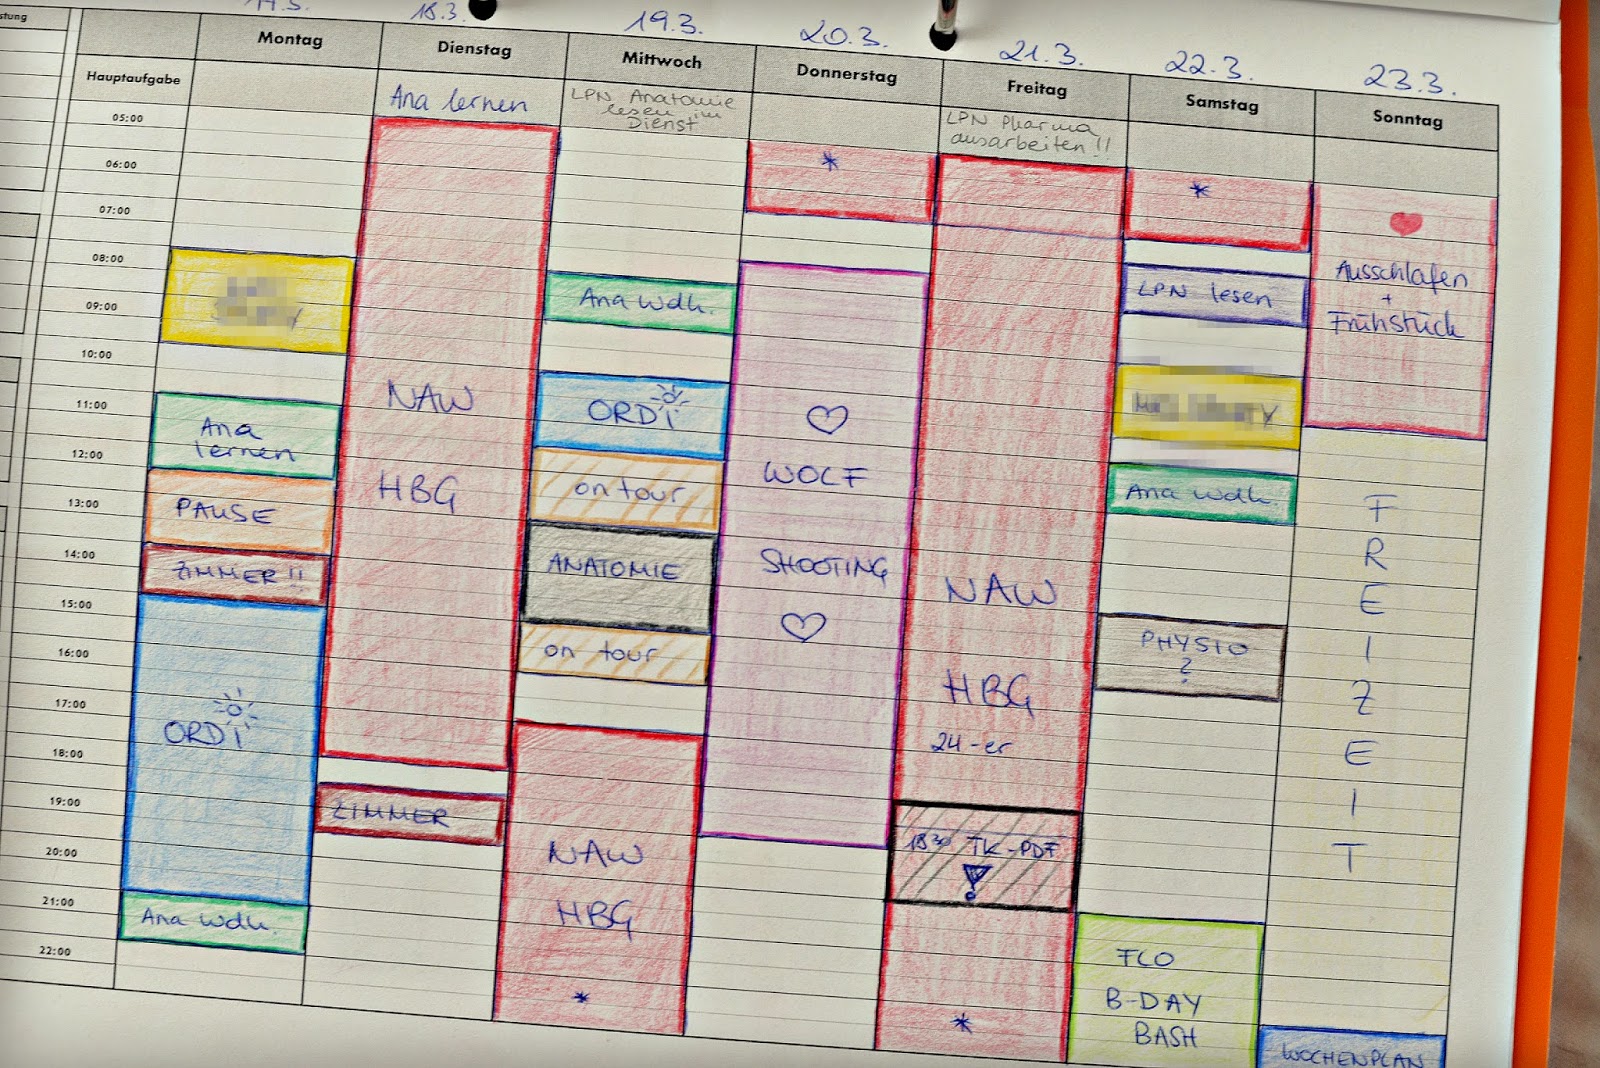 18.3.
19.3.
20.3.
21.3.
22.3.
23.3.
Montag
Dienstag
Mittwoch
Donnerstag
Freitag
Samstag
Sonntag
Hauptaufgabe
Ana lernen
LPN Anatomie
lesen im
Dienst
LPN Pharma
ausarbeiten!!
05:00
06:00
07:00
08:00
09:00
10:00
11:00
12:00
13:00
14:00
15:00
16:00
17:00
18:00
19:00
20:00
21:00
22:00
Ana
lernen
PAUSE
ZIMMER!!
ORDI
Ana wdh.
NAW
HBG
ZIMMER
Ana wdh.
ORDI
on tour
ANATOMIE
on tour
NAW
HBG
*
*
WOLF
SHOOTING
NAW
HBG
24-er
18:30 TK-PDF
!
*
*
LPN lesen
Ana wdh.
PHYSIO
?
FCO
B-DAY
BASH
Ausschlafen
+
Frühstück
F
R
E
I
Z
E
I
T
WOCHENPLAN